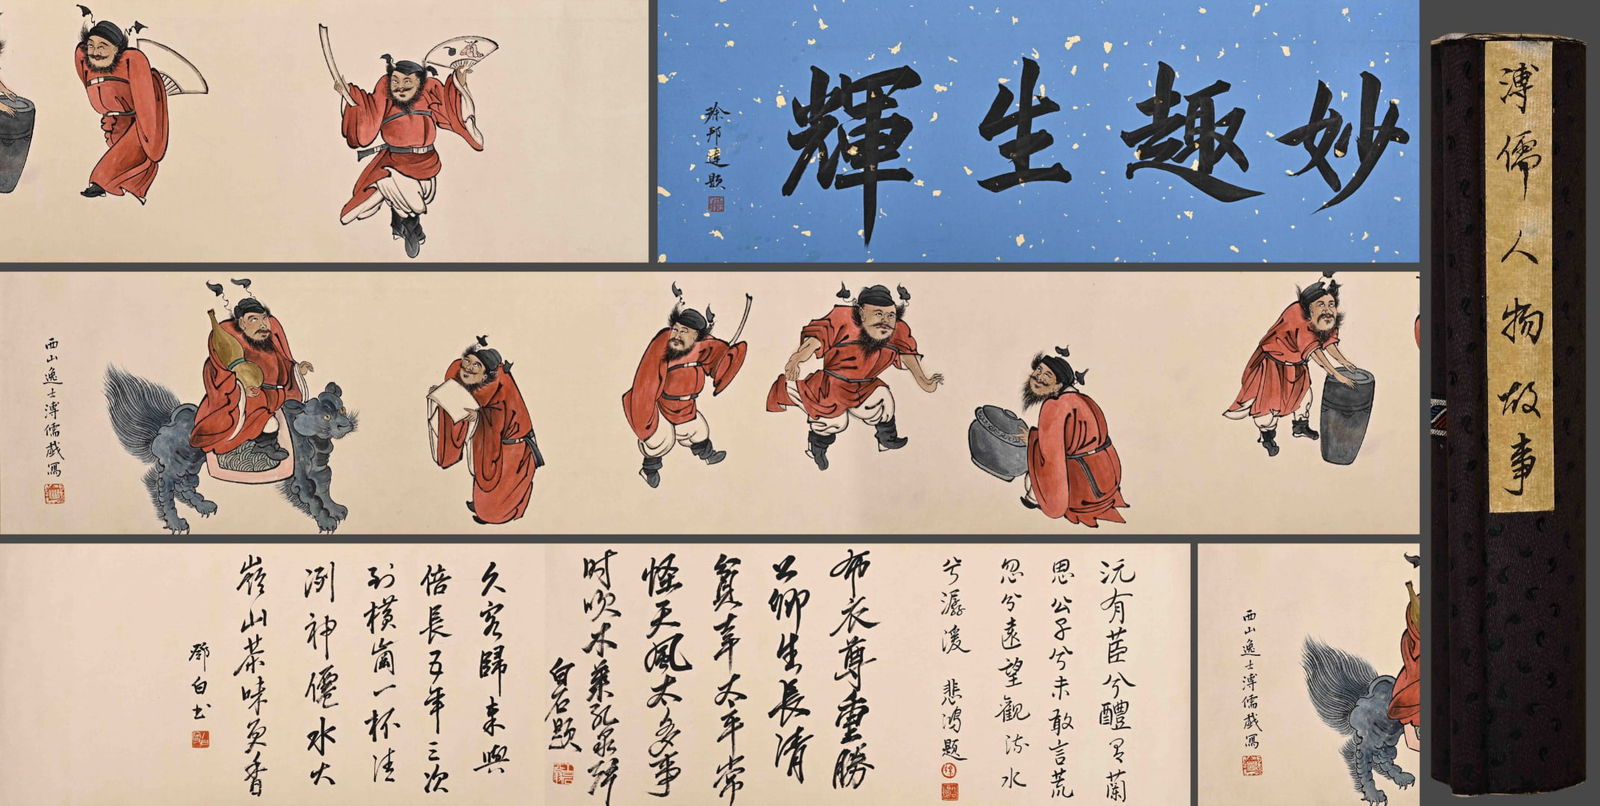 妙趣生輝
徐邦達題
溥儒人物故事
西山逸士溥儒戲寫
沅有茝兮醴有蘭
思公子兮未敢言荒
忽兮遠望觀流水
兮潺湲 悲鴻題
布衣尊重勝
公卿生長清
貧幸太平常
怪天風太多事
时吹木葉乱泉聲
白石題
久客歸來興
倍長五年三次
到橫崗一杯清
洌神僊水大
嶺山茶味更香
鄧白书
西山逸士溥儒戲寫